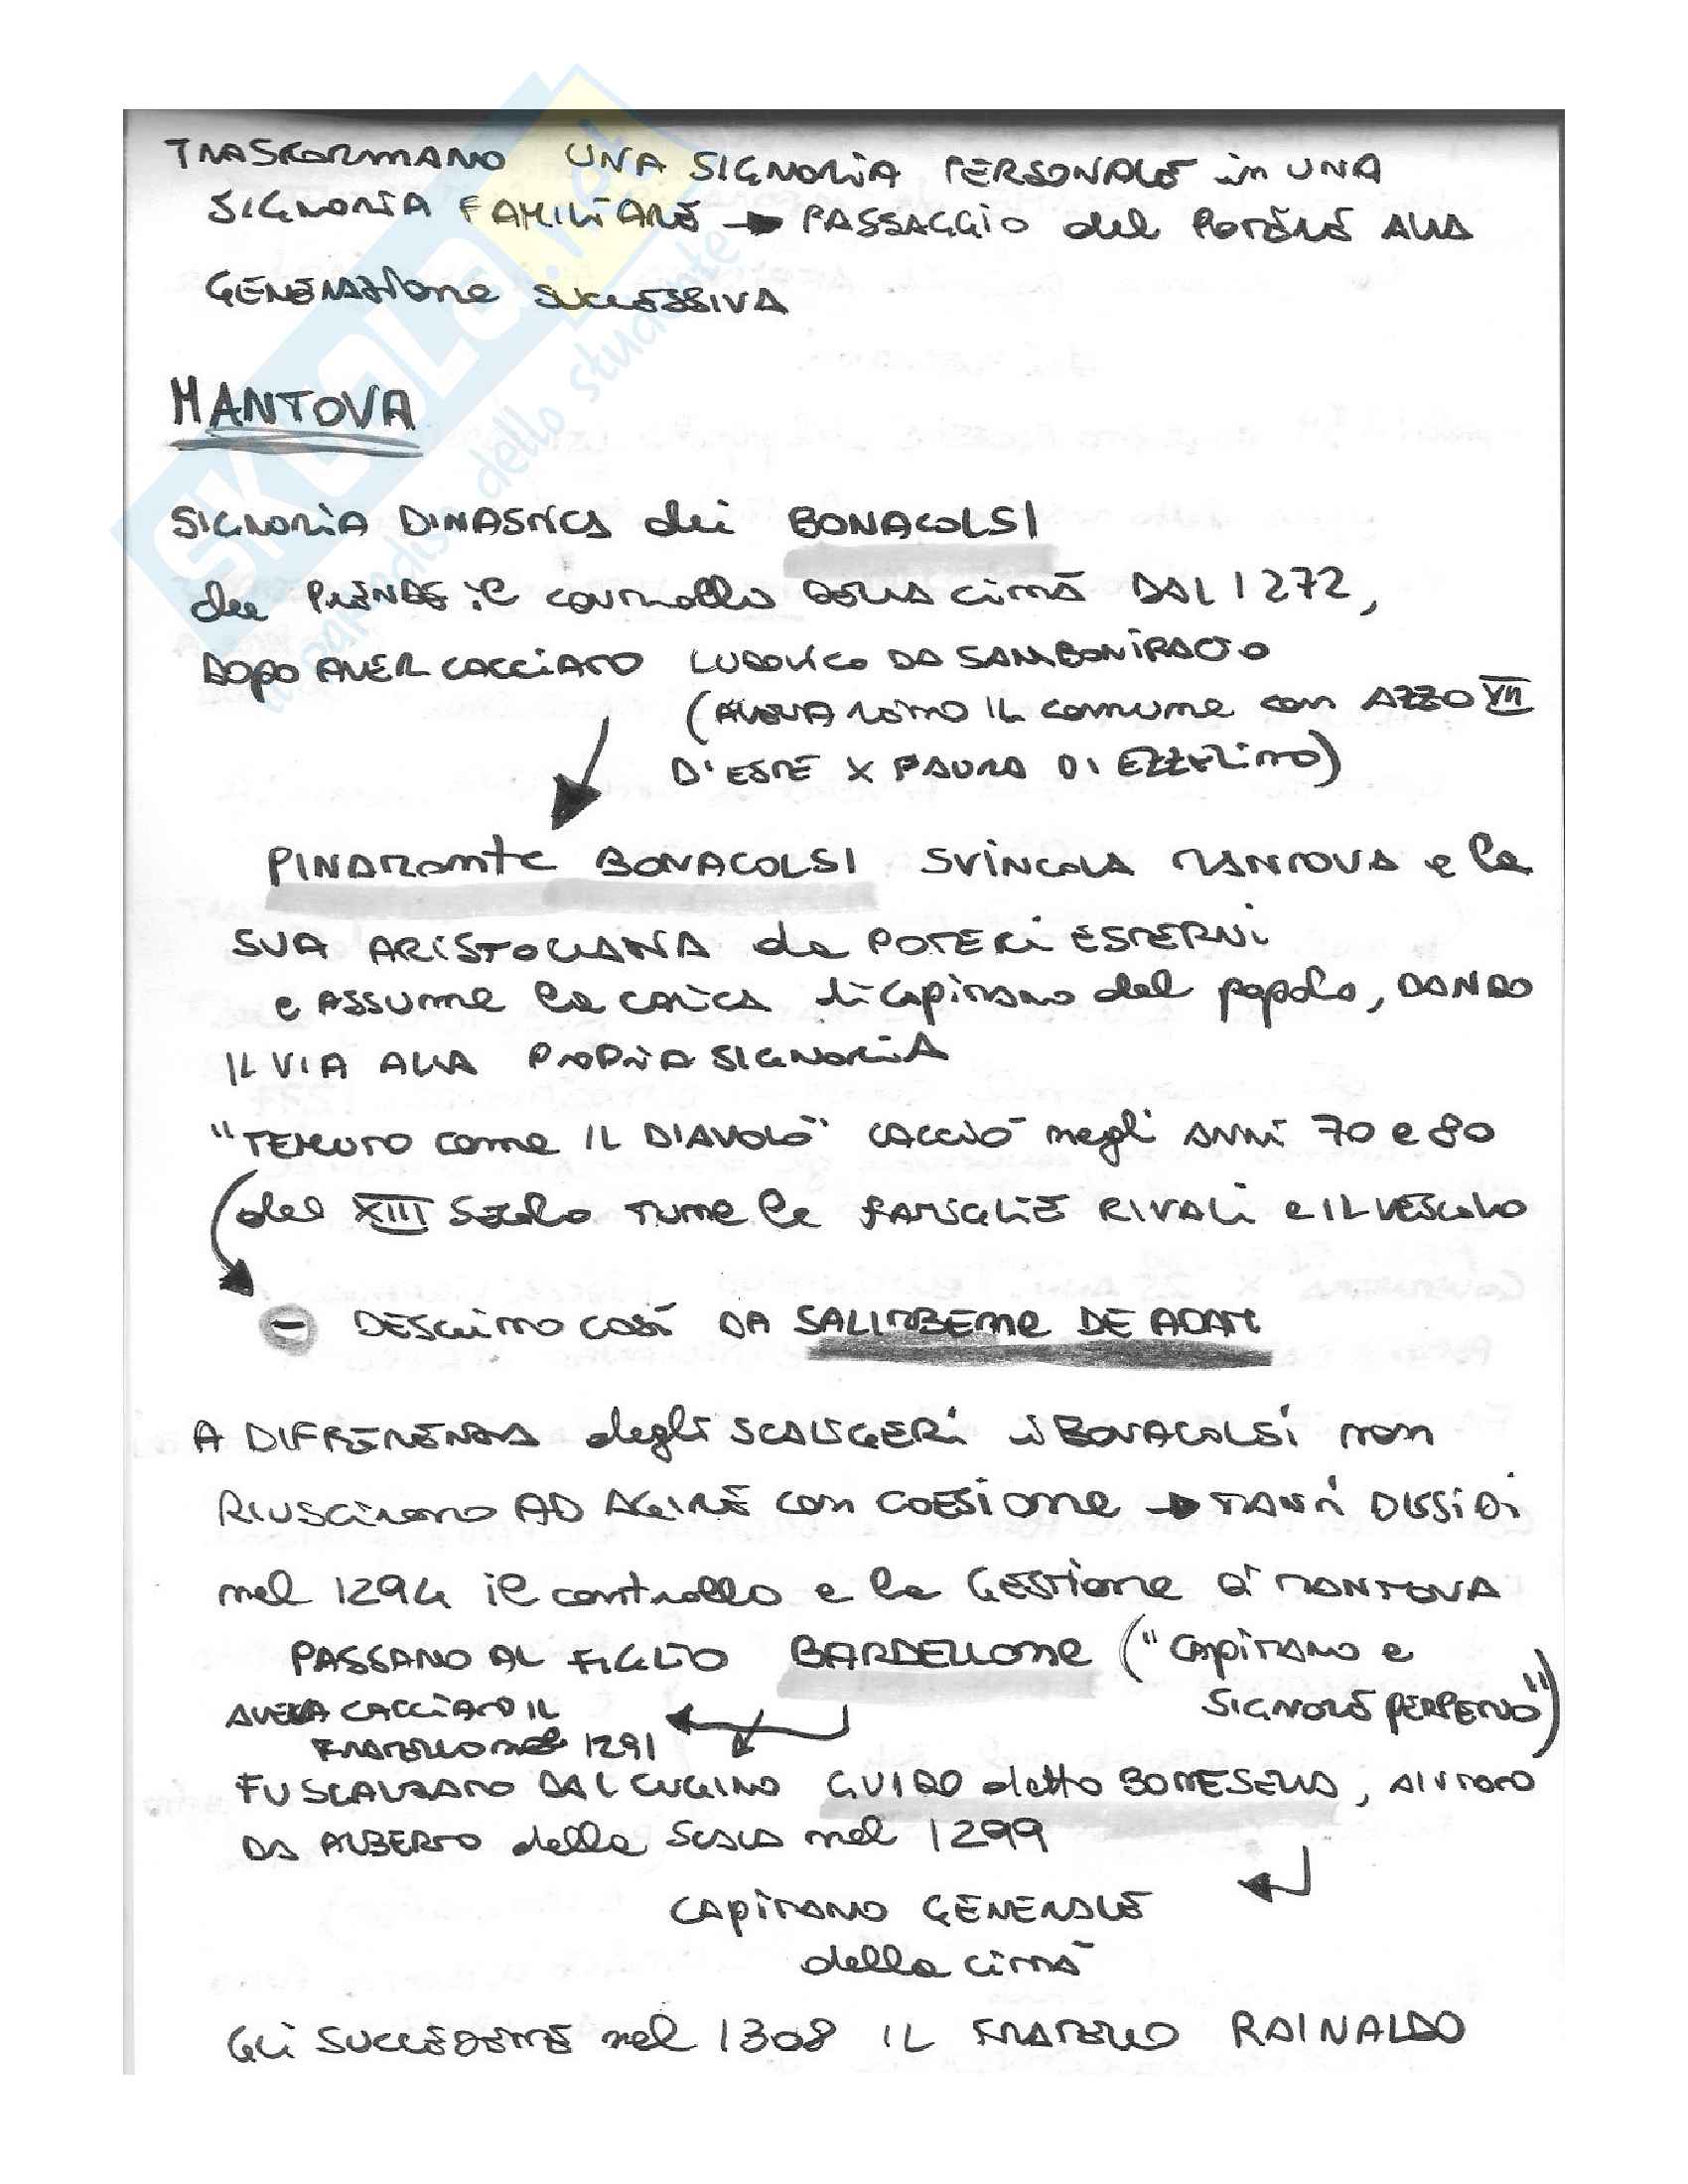 TRASFORMANO UNA SIGNORIA PERSONALE in UNA
SIGNORIA FAMILIARE → PASSAGGIO del POTERE ALLA
GENERAZIONE SUCCESSIVA
MANTOVA
SIGNORIA DINASTICA dei BONACOLSI
che PRENDE il controllo DELLA CITTÀ DAL 1272,
DOPO AVER CACCIATO LUDOVICO DA SAMBONIFACIO
(AVEVA RETTO IL comune con AZZO VII
D'ESTE X PAURA DI EZZELINO)
PINAMONTE BONACOLSI SVINCOLA MANTOVA e la
SUA ARISTOCRAZIA da POTERI ESTERNI
e ASSUME la CARICA di CAPITANO del popolo, DANDO
IL VIA ALLA PROPRIA SIGNORIA
"TEMUTO come IL DIAVOLO" CACCIÒ negli ANNI 70 e 80
del XIII SECOLO TUTTE le FAMIGLIE RIVALI e IL VESCOVO
- DESCRITTO COSÌ DA SALIMBENE DE ADAM
A DIFFERENZA degli SCALIGERI i BONACOLSI non
RIUSCIRONO AD AGIRE con COESIONE → TANTI DISSIDI
nel 1294 il controllo e la GESTIONE di MANTOVA
PASSANO AL FIGLIO BARDELLONE ("CAPITANO e
SIGNORE PERPETUO")
AVEVA CACCIATO IL
FRATELLO nel 1291
FU SCALZATO DAL CUGINO GUIDO detto BOTTESELLA, AIUTATO
DA ALBERTO della SCALA nel 1299
CAPITANO GENERALE
della CITTÀ
GLI SUCCEDETTE nel 1308 IL FRATELLO RAINALDO
SKUOLA.net
il paradiso dello studente